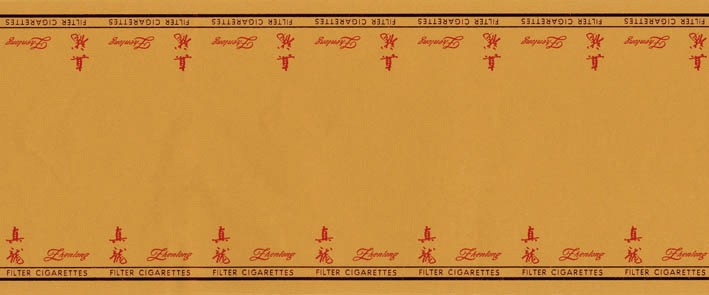 FILTER CIGARETTES FILTER CIGARETTES FILTER CIGARETTES FILTER CIGARETTES FILTER CIGARETTES FILTER CIGARETTES FILTER CIGARETTES
真龙 Zhenlong 真龙 Zhenlong 真龙 Zhenlong 真龙 Zhenlong 真龙 Zhenlong 真龙 Zhenlong 真龙 Zhenlong
真龙 Zhenlong 真龙 Zhenlong 真龙 Zhenlong 真龙 Zhenlong 真龙 Zhenlong 真龙 Zhenlong 真龙 Zhenlong
FILTER CIGARETTES FILTER CIGARETTES FILTER CIGARETTES FILTER CIGARETTES FILTER CIGARETTES FILTER CIGARETTES FILTER CIGARETTES